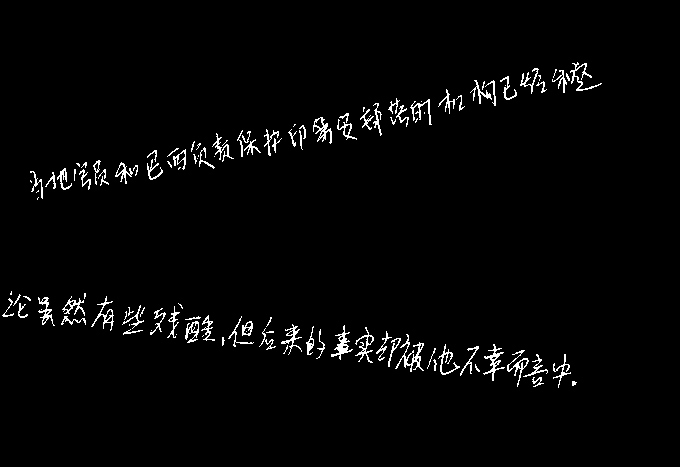 当地官员和巴西负责保护印第安部落的机构已经和这
论虽然有些残酷,但后来的事实却被他不幸而言中.